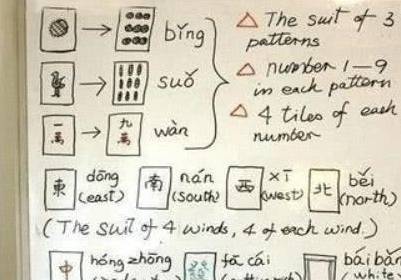 bǐng
suǒ
一萬 → 九萬 wàn
△ The suit of 3
patterns
△ number 1-9
in each pattern
△ 4 tiles of each
number
東 dōng 南 nán 西 xī 北 běi
(east) (south) (west) (north)
(The suit of 4 winds, 4 of each wind.)
中 hóng zhōng fā cái bái bǎn
white